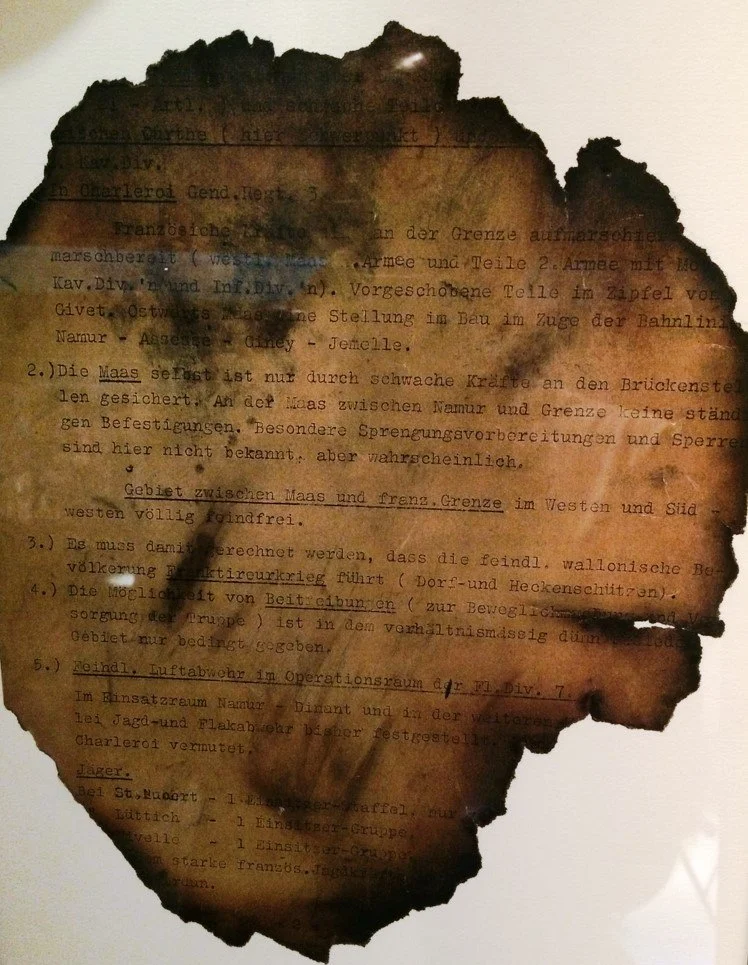 - Artl. ) und schwache Teile
schen Ourthe ( hier Schwerpunkt )
. Kav.Div.
In Charleroi Gend.Regt. 3
Französiche Kräfte an der Grenze aufmarschier
marschbereit ( westl. Maas .Armee und Teile 2.Armee mit Mo
Kav.Div.'n und Inf.Div.'n). Vorgeschobene Teile im Zipfel von
Givet. Ostwärts Maas eine Stellung im Bau im Zuge der Bahnlini
Namur - Assesse - Ciney - Jemelle.
2.)Die Maas selbst ist nur durch schwache Kräfte an den Brückenstel
len gesichert. An der Maas zwischen Namur und Grenze keine ständ
gen Befestigungen. Besondere Sprengungsvorbereitungen und Sperre
sind hier nicht bekannt, aber wahrscheinlich.
Gebiet zwischen Maas und franz.Grenze im Westen und Süd -
westen völlig feindfrei.
3.) Es muss damit gerechnet werden, dass die feindl. wallonische Be-
völkerung Franktireurkrieg führt ( Dorf-und Heckenschützen).
4.) Die Möglichkeit von Beitreibungen ( zur Beweglichmachung und V
sorgung der Truppe ) ist in dem verhältnismässig dünn
Gebiet nur bedingt gegeben.
5.) Feindl. Luftabwehr im Operationsraum der Fl.Div. 7.
Im Einsatzraum Namur - Dinant und in der weiteren
lei Jagd-und Flakabwehr bisher festgestellt.
Charleroi vermutet.
Jäger.
Bei St.Hubert - 1 Einsitzer-Staffel, nur
Lüttich - 1 Einsitzer-Gruppe,
ivelle - 1 Einsitzer-Gruppe,
starke französ.Jagdkräfte
dun.